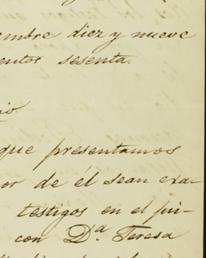 embre diez y nueve
entos sesenta.
io
que presentamos
or de el sean exa-
testigos en el jui-
con Dª Teresa